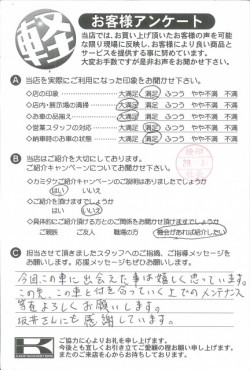 軽
お客様アンケート
当店では、お買い上げ頂いたお客様の声を可能
な限り現場に反映し、お客様により良い商品と
サービスを提供する事に努めています。
大変お手数ですが是非お声をお聞かせ下さい。
A 当店を実際にご利用になった印象をお聞かせ下さい。
◇店の印象 大満足 満足 ふつう やや不満 不満
◇店内・展示場の清掃 大満足 満足 ふつう やや不満 不満
◇お車の品揃え 大満足 満足 ふつう やや不満 不満
◇営業スタッフの対応 大満足 満足 ふつう やや不満 不満
◇納車時のお車の状態 大満足 満足 ふつう やや不満 不満
B 当店はご紹介を大切にしております。
ご紹介キャンペーンについてお聞かせ下さい。
◇カミタケご紹介キャンペーンのご説明はありましたでしょうか
はい いいえ
◇ご紹介を頂けますでしょうか
はい いいえ
◇具体的にご紹介頂ける方とのご関係をお聞かせ頂けますでしょうか
ご親族 ご友人 職場の方 機会があれば紹介したい
C 担当させて頂きましたスタッフへのご指摘、ご指導メッセージを
お願いします。応援メッセージもぜひお願いします。
今回この車に出会えた事は嬉しく思っています。
この先、この車と付き合っていく上でのメンテナンス
等をよろしくお願いします。
坂井さんにも感謝しています。
K
ご協力に心よりお礼を申し上げます。
今後とも宜しくお引き立てご愛顧の程お願い申し上げます。
またのご来店を心からお待ちしております。